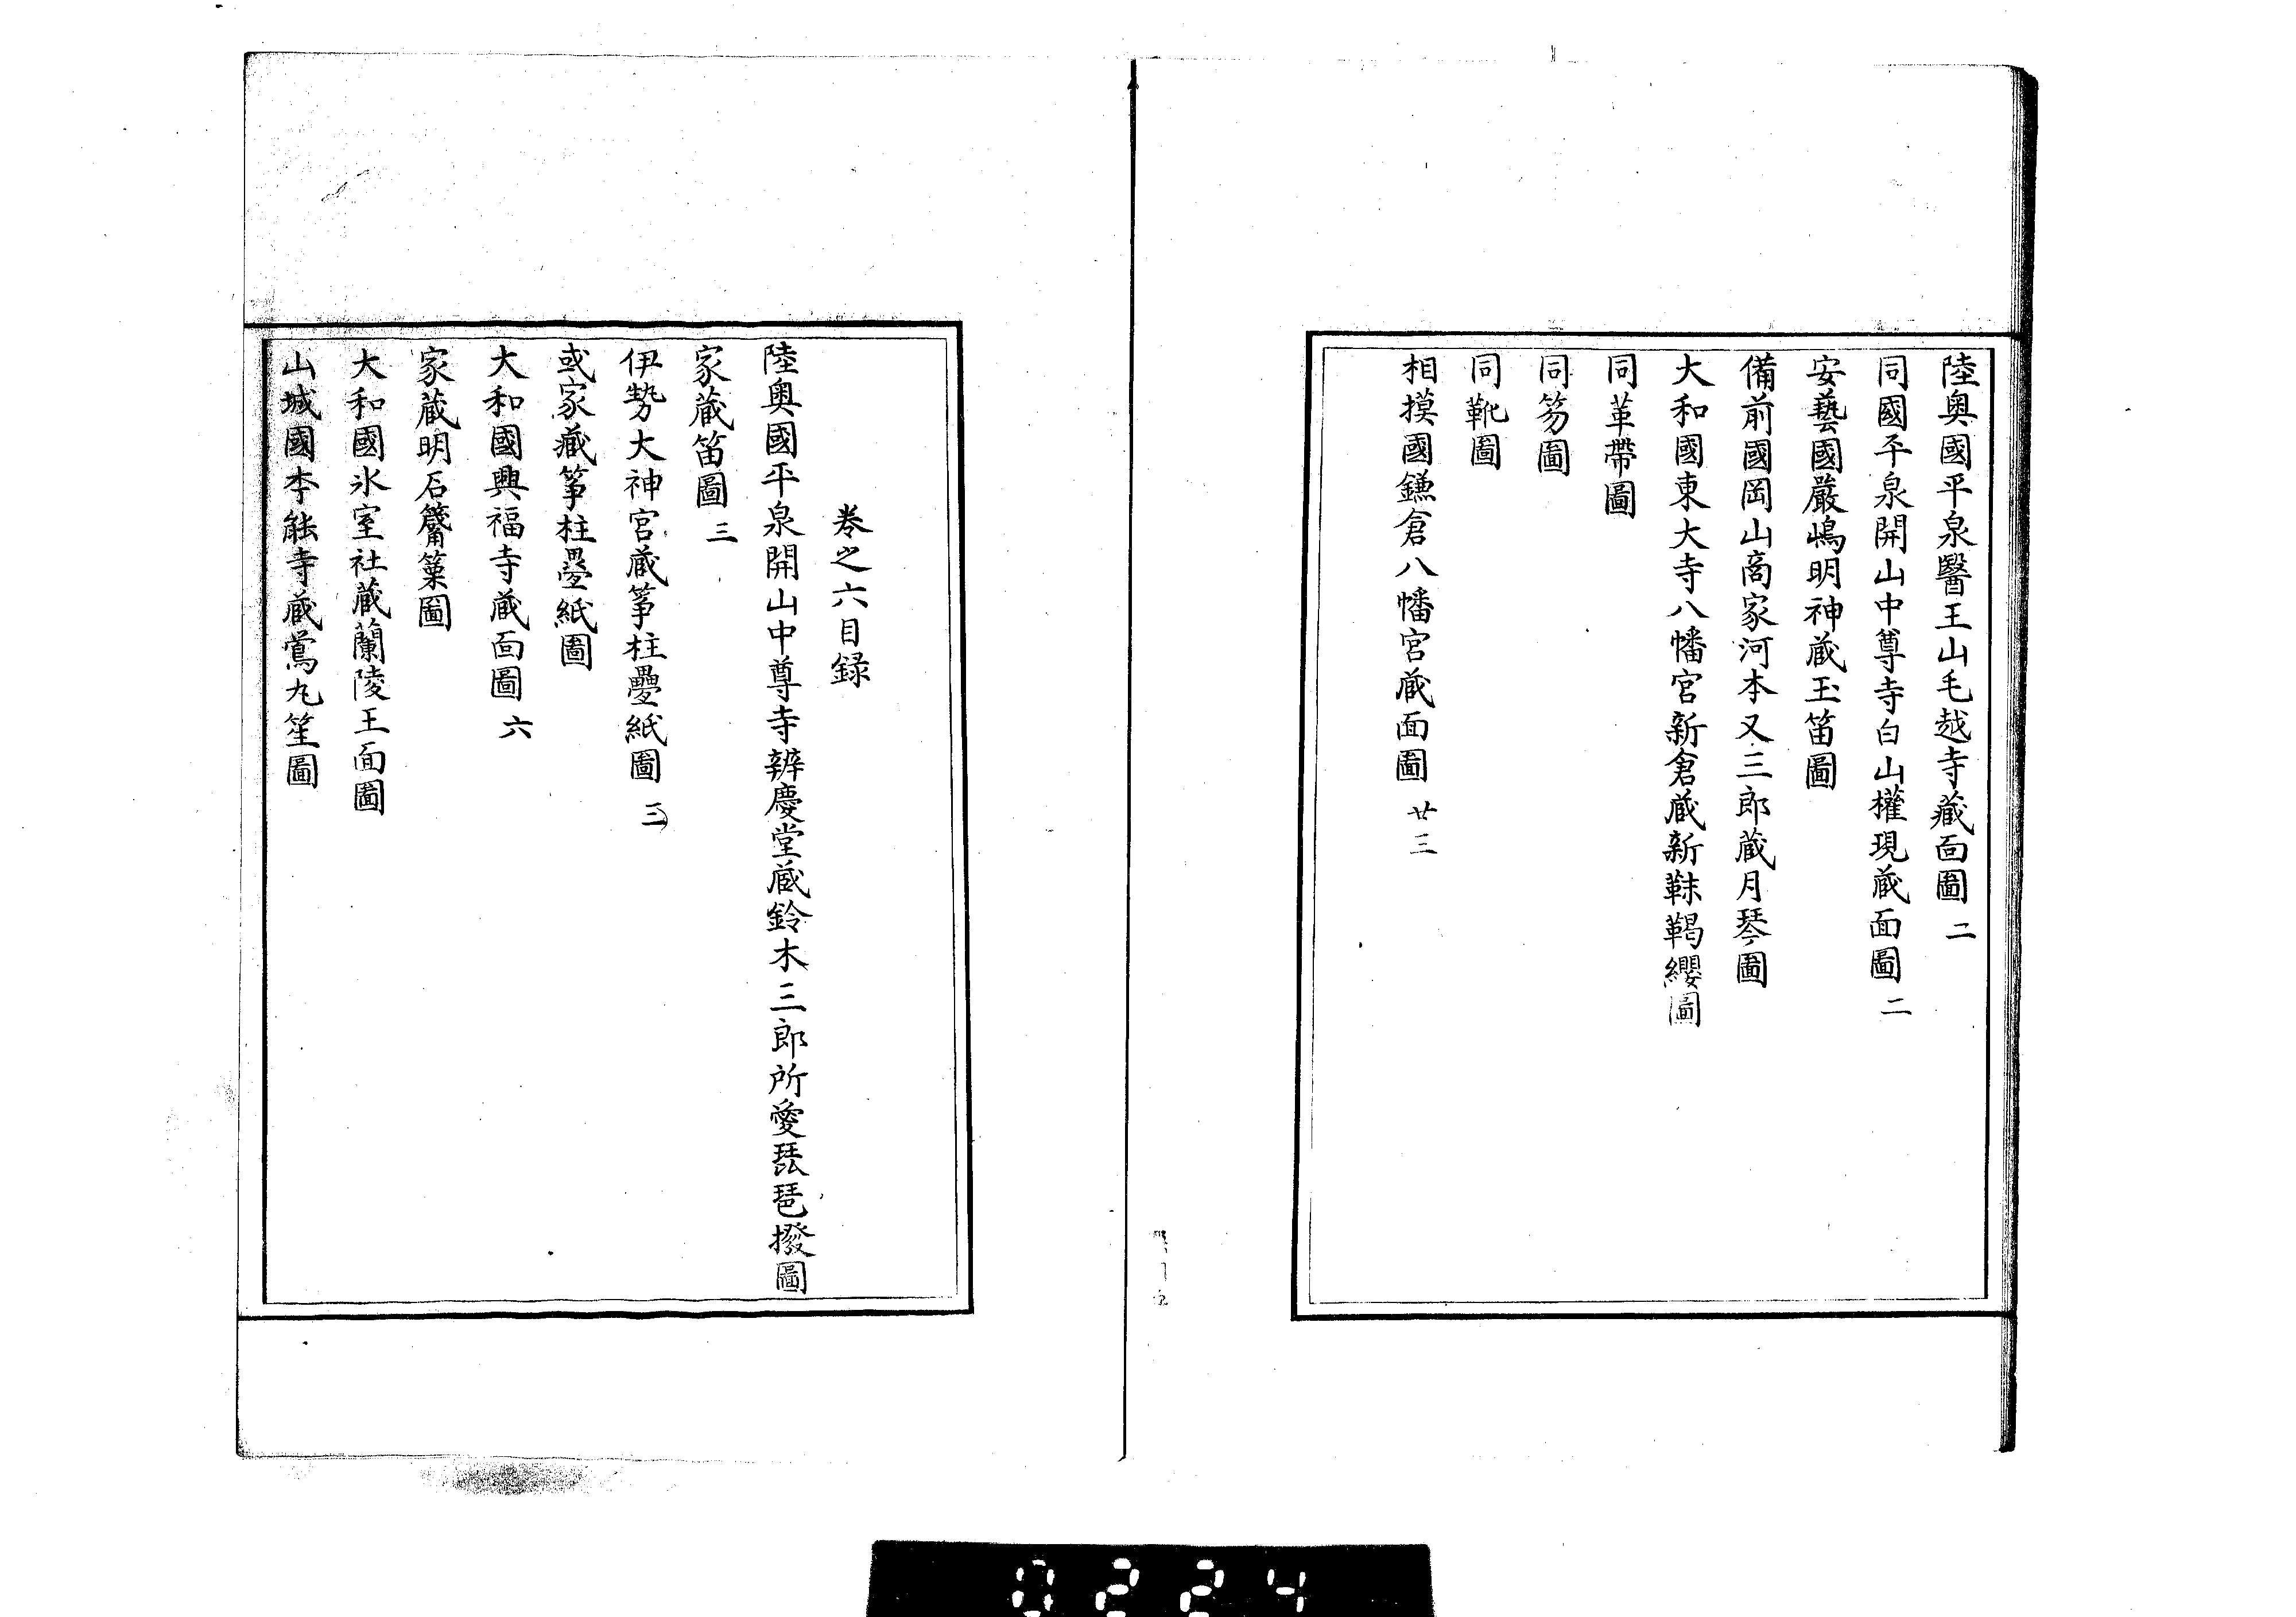 陸奧國平泉醫王山毛越寺藏面圖 二
同國平泉開山中尊寺白山權現藏面圖 二
安藝國嚴嶋明神藏玉笛圖
備前國岡山商家河本又三郎藏月琴圖
大和國東大寺八幡宮新倉藏新靺鞨纓圖
同革帶圖
同笏圖
同靴圖
相摸國鎌倉八幡宮藏面圖 廿三
卷之六目録
陸奧國平泉開山中尊寺辨慶堂藏鈴木三郎所愛琵琶撥圖
家藏笛圖 三
伊勢大神宮藏筝柱疊紙圖 三
或家藏筝柱疊紙圖
大和國興福寺藏面圖 六
家藏明石篳篥圖
大和國氷室社藏蘭陵王面圖
山城國本能寺藏鶯丸笙圖
0224